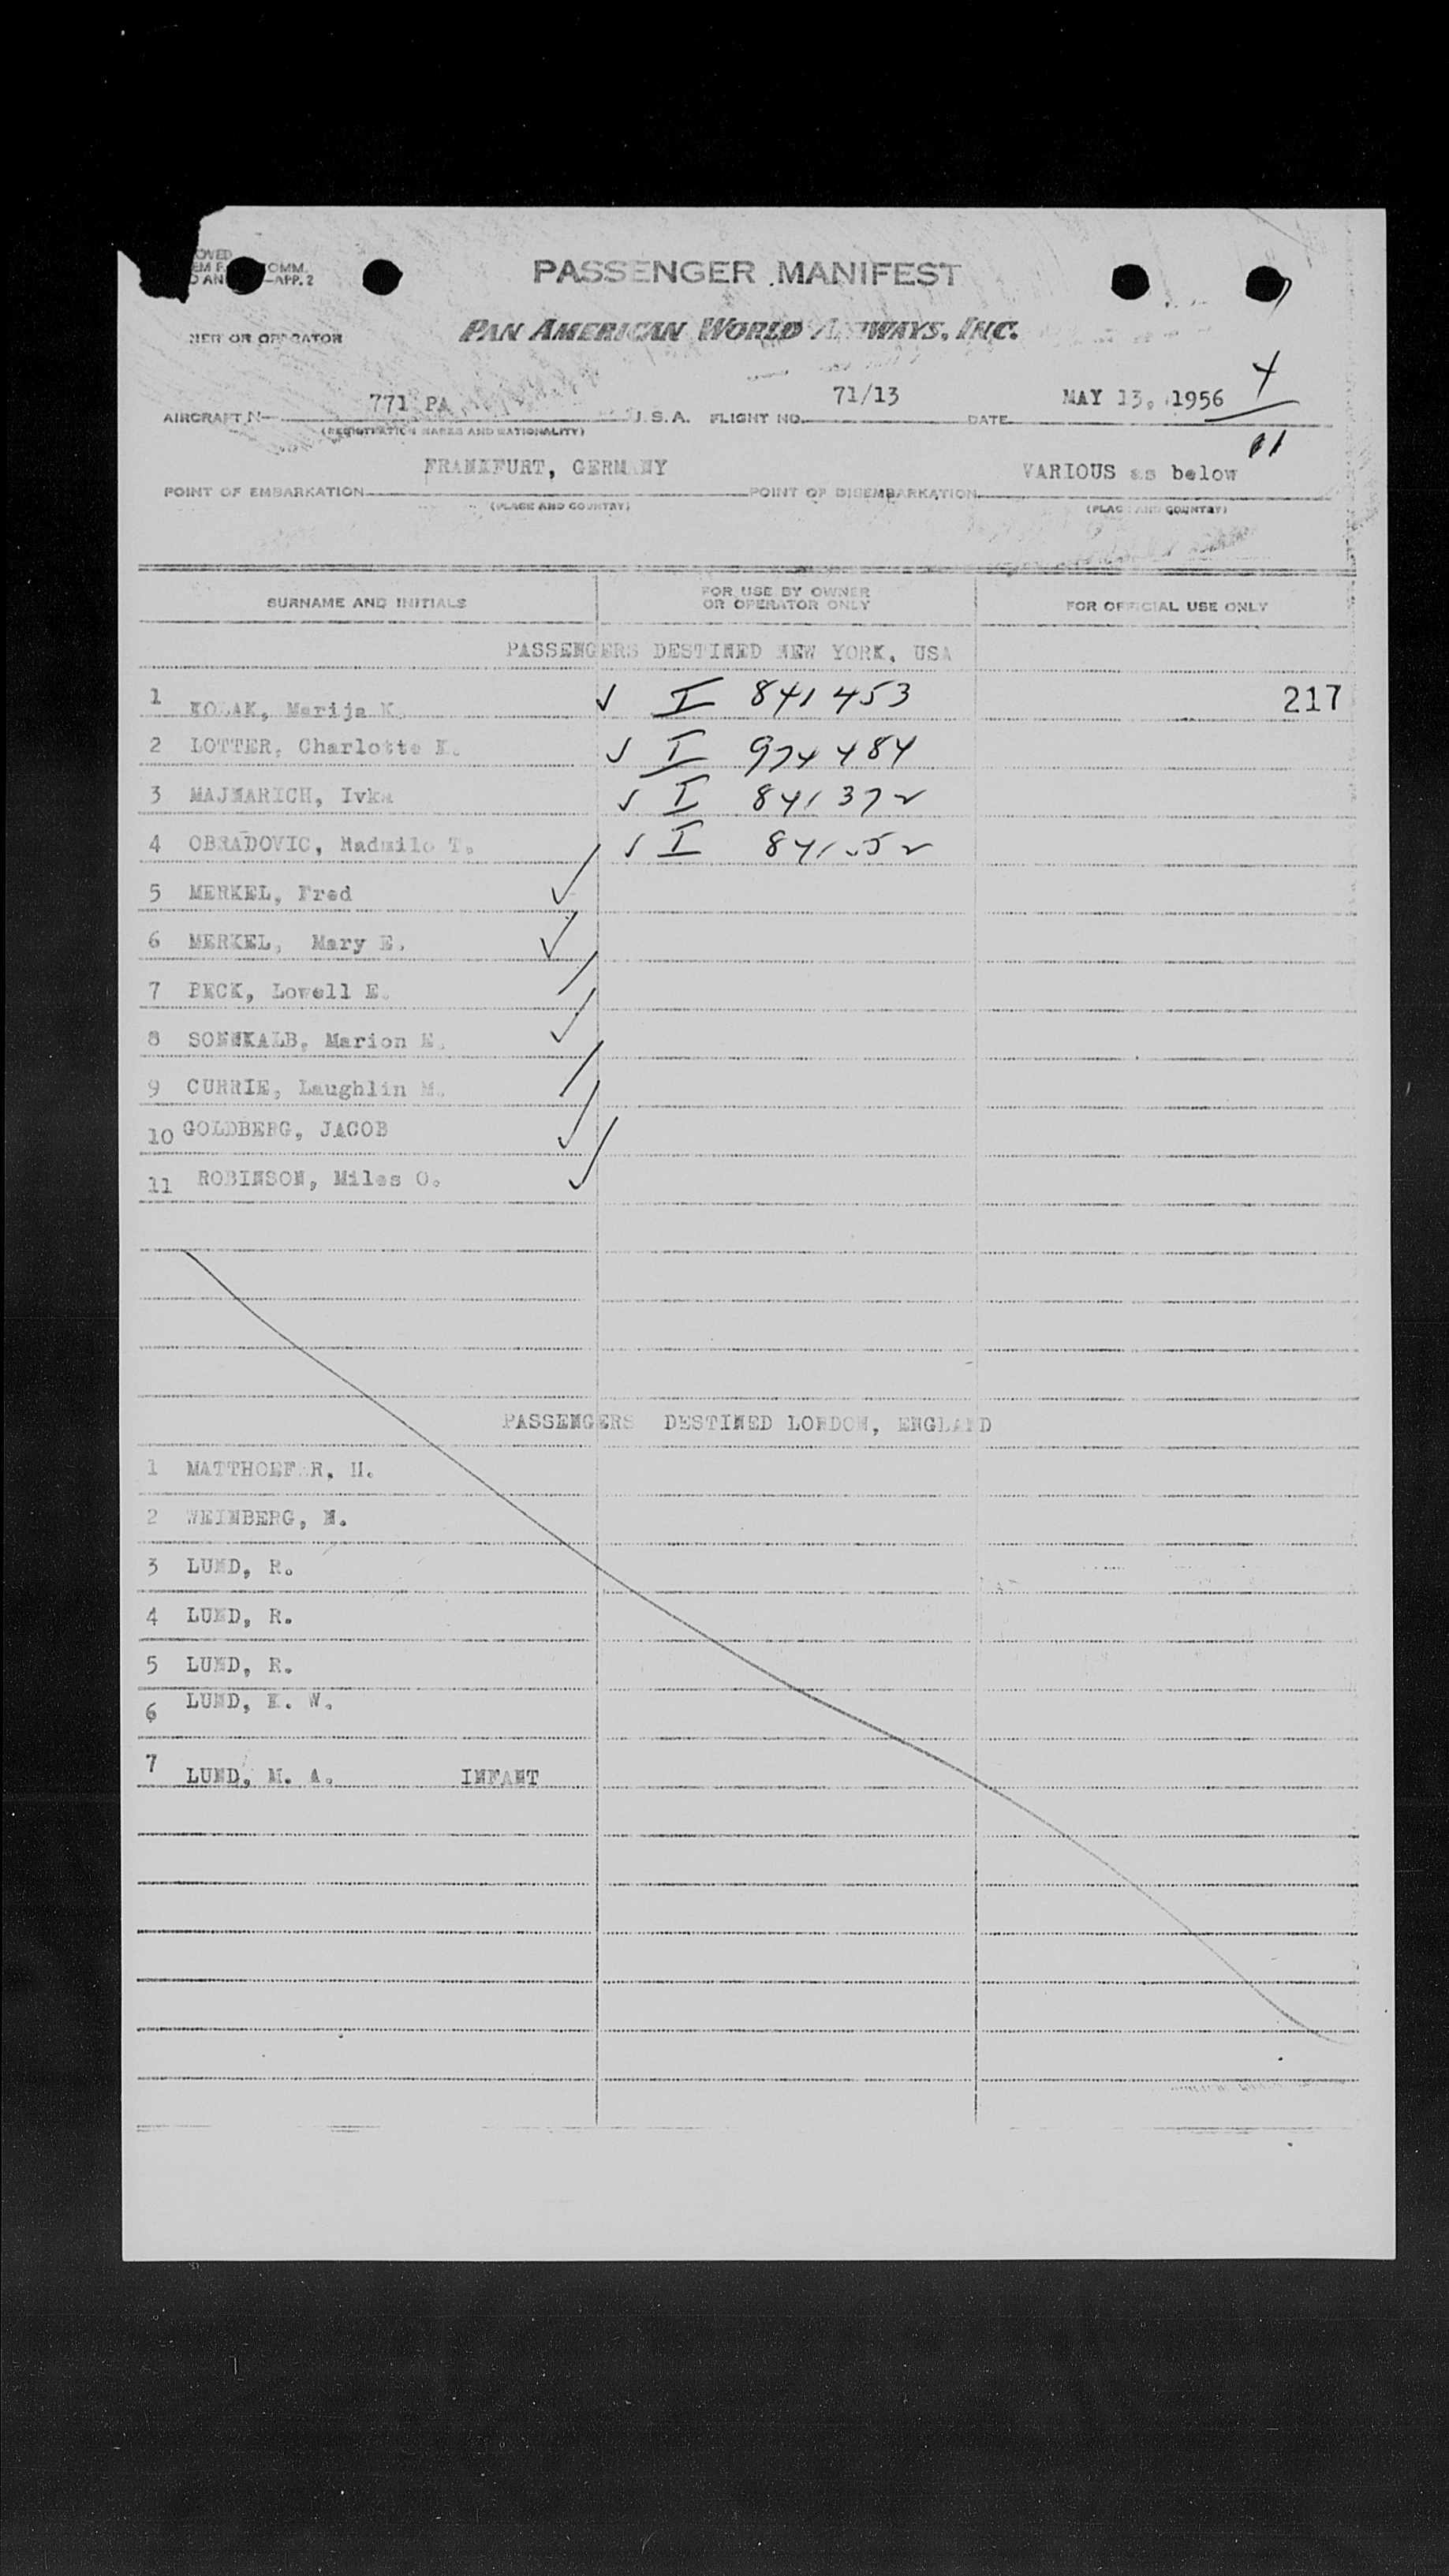 PASSENGER MANIFEST
OVED
OMM.
—APP. 2
PAN AMERICAN WORLD AIRWAYS, INC.
OR OPERATOR
4
AIRCRAFT N— 771 PA U.S.A. FLIGHT NO. 71/13 DATE MAY 13, 1956
(REGISTRATION MARKS AND NATIONALITY)
11
POINT OF EMBARKATION FRANKFURT, GERMANY POINT OF DISEMBARKATION VARIOUS as below
(PLACE AND COUNTRY) (PLACE AND COUNTRY)
SURNAME AND INITIALS FOR USE BY OWNER OR OPERATOR ONLY FOR OFFICIAL USE ONLY
PASSENGERS DESTINED NEW YORK, USA
1 KOLAK, Marija K. ✓ I 841453 217
2 LOTTER, Charlotte E. ✓ I 974484
3 MAJNARICH, Ivka ✓ I 841372
4 OBRADOVIC, Radmilo T. ✓ I
5 MERKEL, Fred ✓
6 MERKEL, Mary E. ✓
7 PECK, Lowell E. /
8 SONNKALB, Marion E. ✓
9 CURRIE, Laughlin M. /
10 GOLDBERG, JACOB ✓
11 ROBINSON, Miles O. ✓
PASSENGERS DESTINED LONDON, ENGLAND
1 MATTHOEFER, H.
2 WEINBERG, N.
3 LUND, R.
4 LUND, R.
5 LUND, R.
6 LUND, K. W.
7 LUND, M. A. INFANT